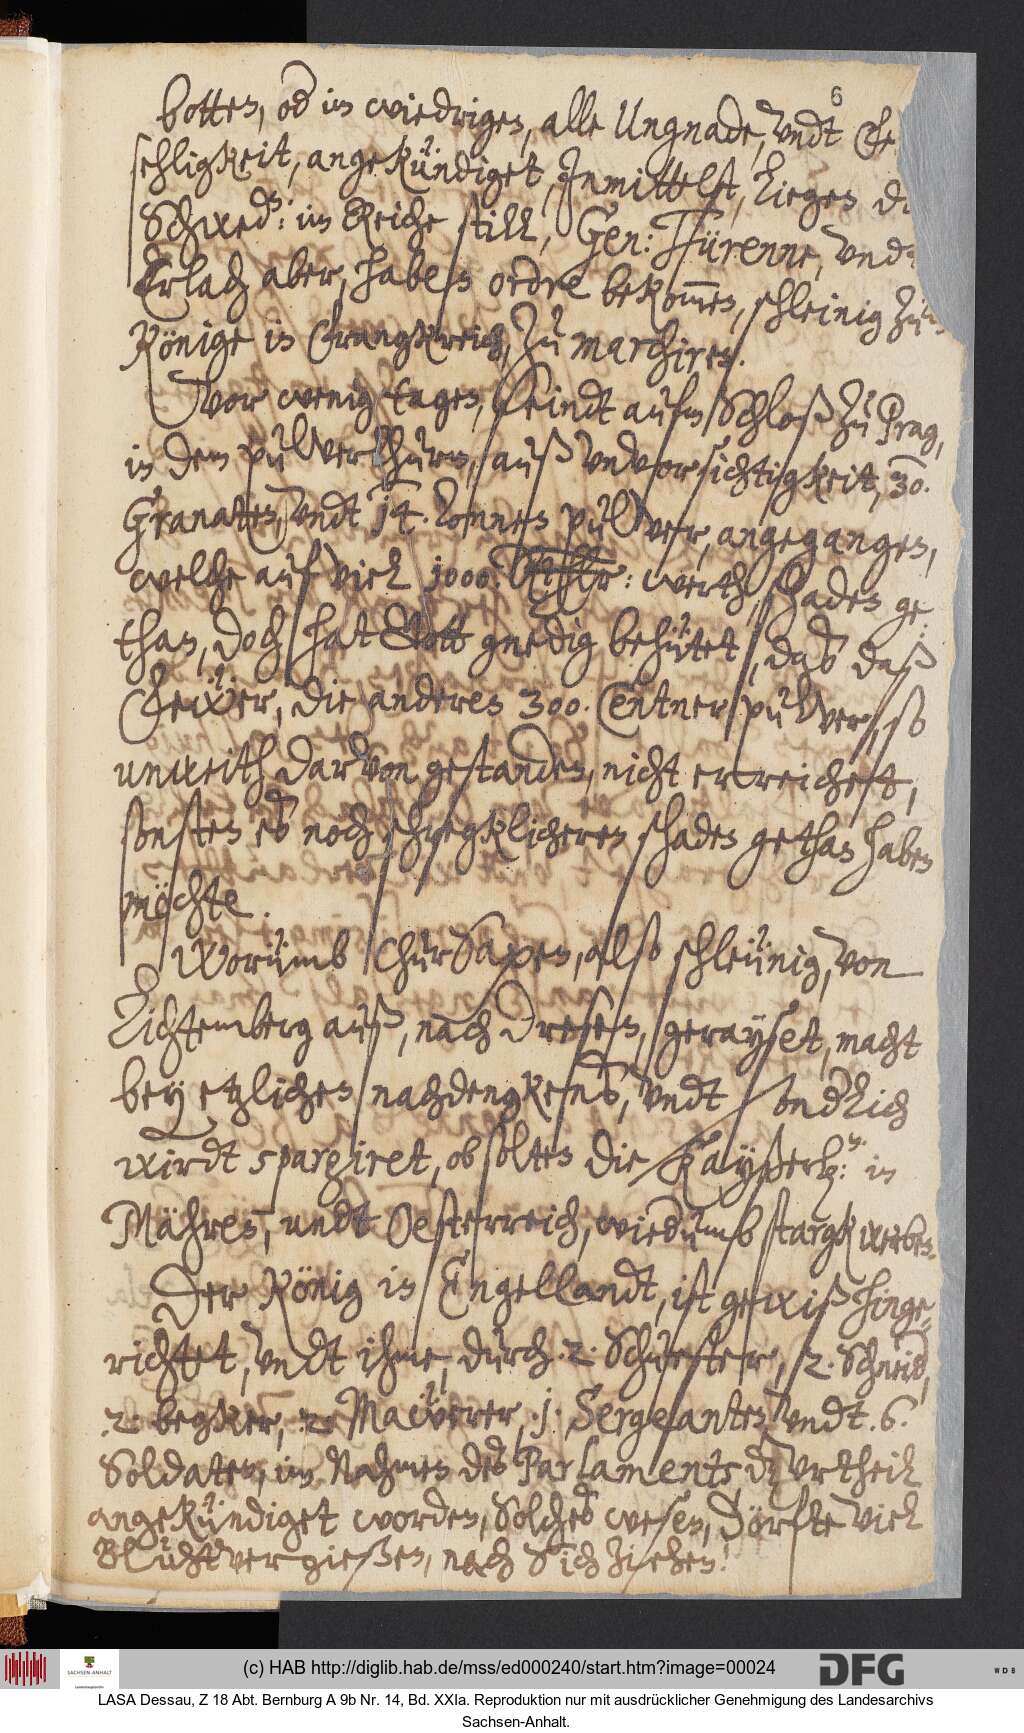 6
botten, od im wiedrigen, alle Ungnade, undt Fe
sehligkeit, angekündiget, Inmittelst, liegen di
Schwed: im Reiche still, Gen: Türenne, undt
Erlach aber, haben ordre bekom̅en, schleinig zum
Könige in Frangkreich, zu marchiren.
Vor wenig tagen, seindt aufm Schloß zu Prag,
in dem pulverthurm, auß unvorsichtigkeit, 30.
Granaten, undt 14. Tonnen pulver, angegangen,
welche auf viel 1000. Rthlr: werth, schaden ge:
than, doch hat Gott gnedig behütet, daß daß
Feẅer, die anderen 300. Centner pulver, so
unweith darvon gestanden, nicht erreichet,
sonsten es noch schregklicheren schaden gethan haben
möchte.
Worümb ChurSaxen, also schleünig, von
Lichtemberg auß, nach Dresen, gerayset, macht
bey etzlichen nachdengkens, undt endlich
wirdt spargiret, ob solten die Kayßerl: in
Mähren, undt Oesterreich, wiedumb stargk werben.
Der König in Engellandt, ist gewiß hinge-
richtet, undt ihme, durch .2. Schuster, .2. Schneid,
.2. begker, .2. Maẅerer, .1. Sergeanten, undt .6.
Soldaten, im Nahmen des Parlaments, d. urtheil
angekündiget worden, Solches wesen, dörfte viel
Bluhtvergießen, nach sich ziehen!
(c) HAB http://diglib.hab.de/mss/ed000240/start.htm?image=00024
SACHSEN-ANHALT
DFG
WDB
LASA Dessau, Z 18 Abt. Bernburg A 9b Nr. 14, Bd. XXIa. Reproduktion nur mit ausdrücklicher Genehmigung des Landesarchivs
Sachsen-Anhalt.